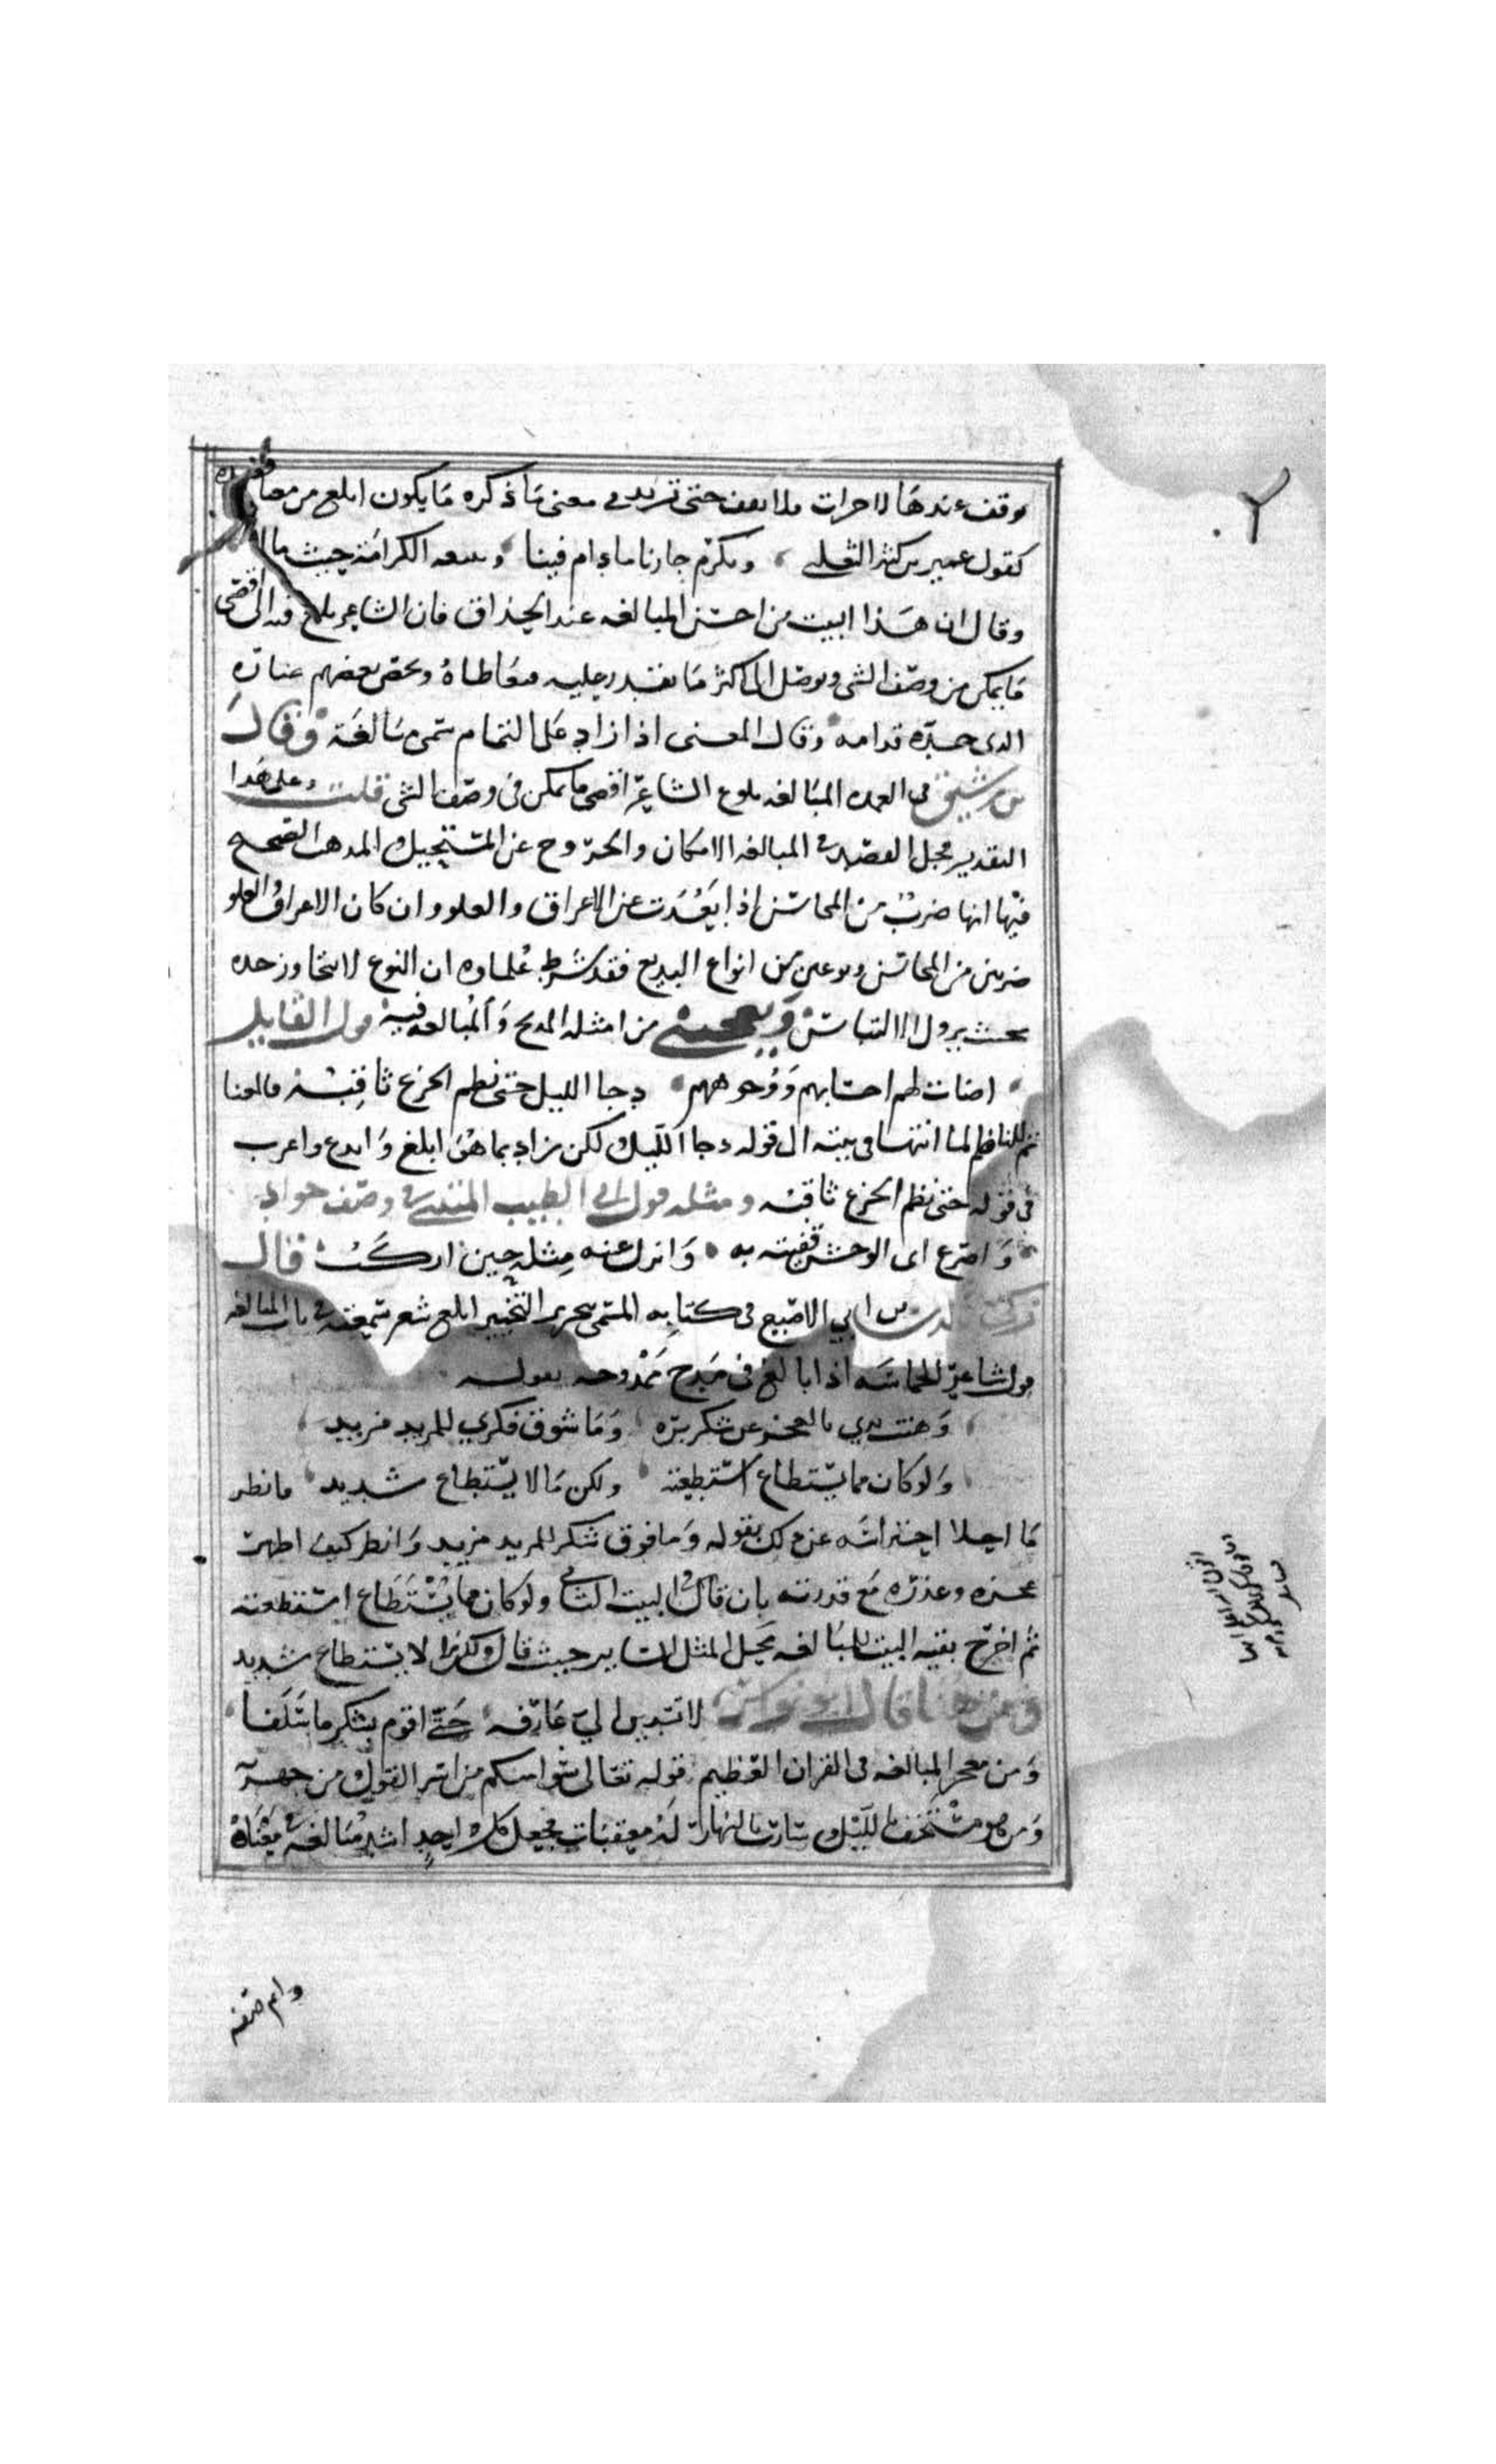 وقف عندها لاجرات ولا يقف حتى تزيد في معنى ما ذكره ما يكون ابلغ من معنا قصده
كقول عمير بن كثير التغلبي ، ونكرم جارنا ما دام فينا ، ونتبعه الكرامة حيث مالا
وقال ان هذا البيت من احسن المبالغه عند الحذاق فان الشاعر بلغ فيه الى اقصى
ما يمكن من وصف الشي وتوصل الى اكثر ما يقدر عليه فتعاطاه ولخص بعضهم عبارة
الذي حده قدامه وقال المعنى اذا زاد على التمام سمي مبالغة وقال
بن رشيق في العمده المبالغه بلوغ الشاعر اقصى ما يمكن في وصف الشي قلت وعلى هذا
التقدير محل القصد في المبالغه الامكان والخروج عن المستحيل المذهب الصحيح
فيها انها ضرب من المحاسن اذا بعدت عن الاغراق والغلو وان كان الاغراق والغلو
ضربين من المحاسن ونوعين من انواع البديع فقد شرط علماوه ان النوع لا يتجاوز حده
بحيث يزول الالتباس ويعجبني من امثله المدح والمبالغه فيه قول القايل
اضات لهم احسابهم ووجوههم دجا الليل حتى نظم الجزع ثاقبه فالمعنا
تم للناظم لما انتها في بيته الى قوله دجا الليل لكن زاد بما هو ابلغ وابدع واغرب
في قوله حتى نظم الجزع ثاقبه ومثله قول ابي الطيب المتنبي في وصف جواد
واصرع اي الوحش قفيته به وانزل عنه مثله حين اركب قال
زكي الدين بن ابي الاصبع في كتابه المسمى بتحرير التحبير ابلغ شعر سمعته في باب المبالغه
قول شاعر الحماسه اذا بالغ في مدح ممدوحه بقوله
رهنت يدي بالعجز عن شكر بره وما فوق شكري للمزيد مزيد
ولو كان مما يستطاع استطعته ولكن ما لا يستطاع شديد فانظر
ما احلا احتراسه عن ذلك بقوله وما فوق شكر المزيد مزيد وانظر كيف اظهر
عجزه وعذره مع قدرته بان قال في البيت الثاني ولو كان مما يستطاع استطعته
ثم اخرج بقيه البيت للمبالغه مخرج المثل الساير حيث قال ولكن ما لا يستطاع شديد
ومن هنا قال ابو نواس لا تسدين الي عارفه حتى اقوم بشكر ما سلفا
ومن معجز المبالغه في القران العظيم قوله تعالى سوا منكم من اسر القول ومن جهر به
ومن هو مستخف بالليل وسارب بالنهار له معقبات فجعل كل واحد اشد مبالغه في معناه
واتم صفه